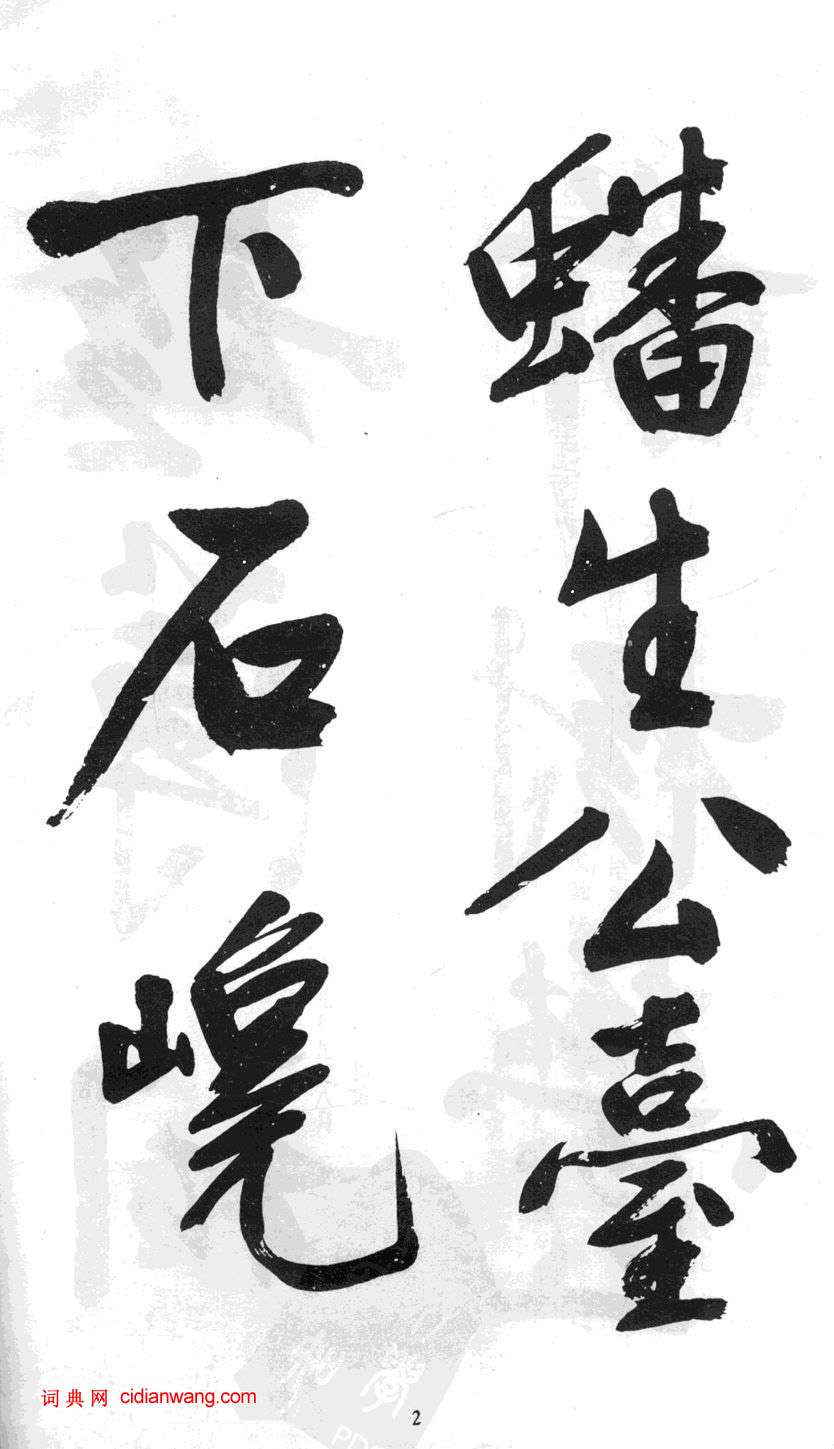 蟠生公臺
下石
词典网 cidianwang.com
2